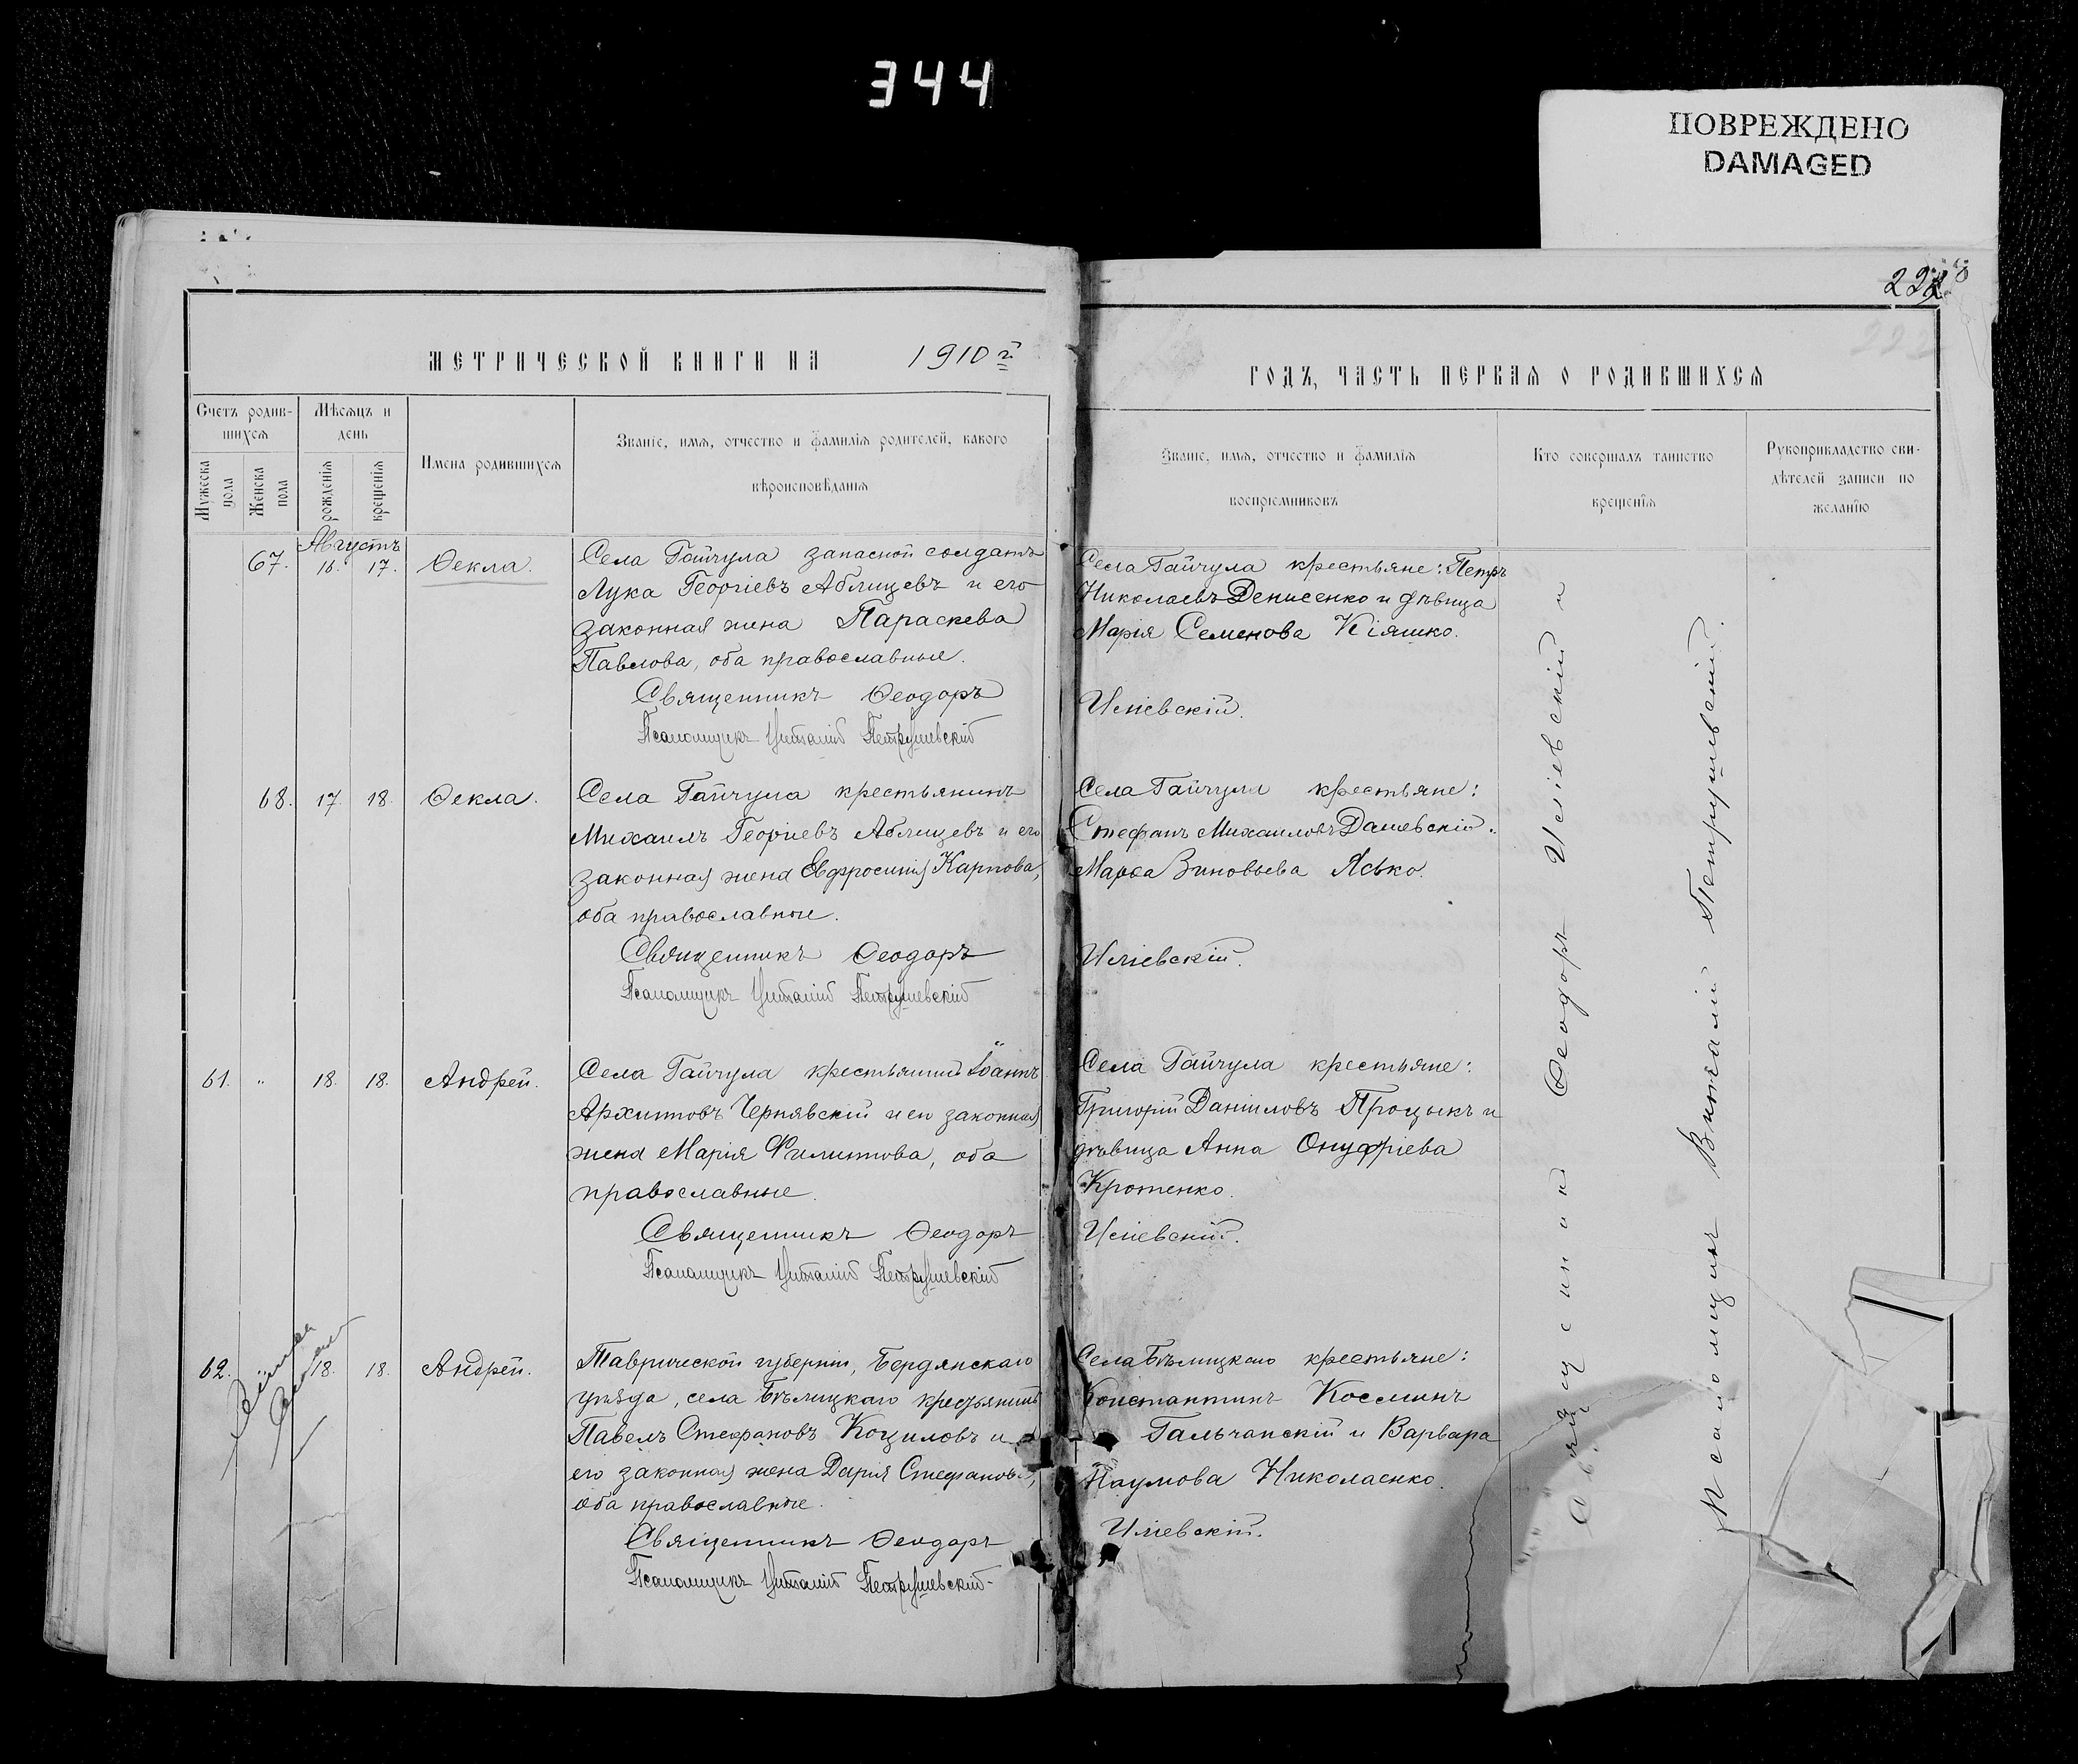 344
ПОВРЕЖДЕНО
DAMAGED
МЕТРИЧЕСКОЙ КНИГИ НА 1910 г.
Счетъ родив-
шихся
Мѣсяцъ и
день
Мужеска
пола
Женска
пола
рожденія
крещенія
Имена родившихся
Званіе, имя, отчество и фамилія родителей, какого
вѣроисповѣданія
Августъ
67. 16. 17. Ѳекла.
Села Гайчула запасной солдатъ
Лука Георгіевъ Аблицевъ и его
законная жена Параскева
Павлова, оба православные.
Священникъ Ѳеодоръ
Псаломщикъ Виталій Петрушевскій
68. 17. 18. Ѳекла.
Села Гайчула крестьянинъ
Михаилъ Георгіевъ Аблицевъ и его
законная жена Евфросинія Карпова,
оба православные.
Священникъ Ѳеодоръ
Псаломщикъ Виталій Петрушевскій
61. " 18. 18. Андрей.
Села Гайчула крестьянинъ Іоаннъ
Архиповъ Чернявскій и его законная
жена Марія Филиппова, оба
православные.
Священникъ Ѳеодоръ
Псаломщикъ Виталій Петрушевскій
62. 18. 18. Андрей.
Таврической губерніи, Бердянскаго
уѣзда, села Бѣлицкаго крестьянинъ
Павелъ Стефановъ Коциловъ и
его законная жена Дарія Стефанова,
оба православные.
Священникъ Ѳеодоръ
Псаломщикъ Виталій Петрушевскій
ГОДЪ, ЧАСТЬ ПЕРВАЯ О РОДИВШИХСЯ
Званіе, имя, отчество и фамилія
воспріемниковъ
Кто совершалъ таинство
крещенія
Рукоприкладство сви-
дѣтелей записи по
желанію
Села Гайчула крестьяне: Петръ
Николаевъ Денисенко и дѣвица
Марія Семенова Кіяшко.
Иліевскій.
Села Гайчула крестьяне:
Стефанъ Михаиловъ Дашевскій и
Марѳа Зиновьева Ясько.
Иліевскій.
Села Гайчула крестьяне:
Григорій Даніиловъ Процыкъ и
дѣвица Анна Онуфріева
Кротенко.
Иліевскій.
Села Бѣлицкаго крестьяне:
Константинъ Косминъ
Гальчанскій и Варвара
Наумова Николаенко.
Иліевскій.
Священникъ Ѳеодоръ Иліевскій и
Псаломщикъ Виталій Петрушевскій.